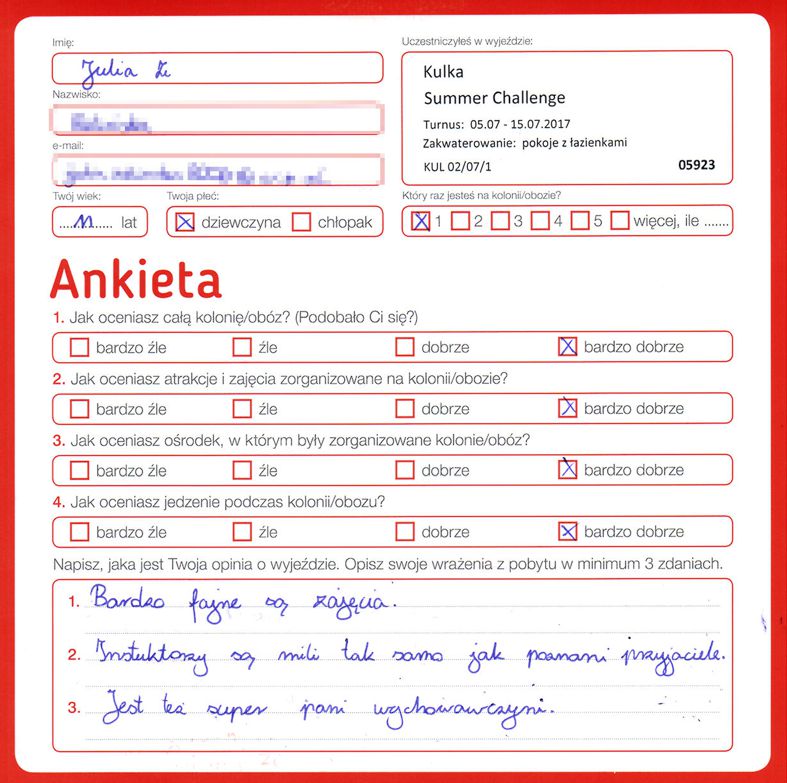 Imię:
Julia
Nazwisko:
e-mail:
Twój wiek:
Twoja płeć:
.....11..... lat
dziewczyna chłopak
Uczestniczyłeś w wyjeździe:
Kulka
Summer Challenge
Turnus: 05.07 - 15.07.2017
Zakwaterowanie: pokoje z łazienkami
KUL 02/07/1 05923
Który raz jesteś na kolonii/obozie?
1 2 3 4 5 więcej, ile .......
Ankieta
1. Jak oceniasz całą kolonię/obóz? (Podobało Ci się?)
bardzo źle źle dobrze bardzo dobrze
2. Jak oceniasz atrakcje i zajęcia zorganizowane na kolonii/obozie?
bardzo źle źle dobrze bardzo dobrze
3. Jak oceniasz ośrodek, w którym były zorganizowane kolonie/obóz?
bardzo źle źle dobrze bardzo dobrze
4. Jak oceniasz jedzenie podczas kolonii/obozu?
bardzo źle źle dobrze bardzo dobrze
Napisz, jaka jest Twoja opinia o wyjeździe. Opisz swoje wrażenia z pobytu w minimum 3 zdaniach.
1. Bardzo fajne są zajęcia.
2. Instuktorzy są mili tak samo jak poznani przyjaciele.
3. Jest też super pani wychowawczyni.